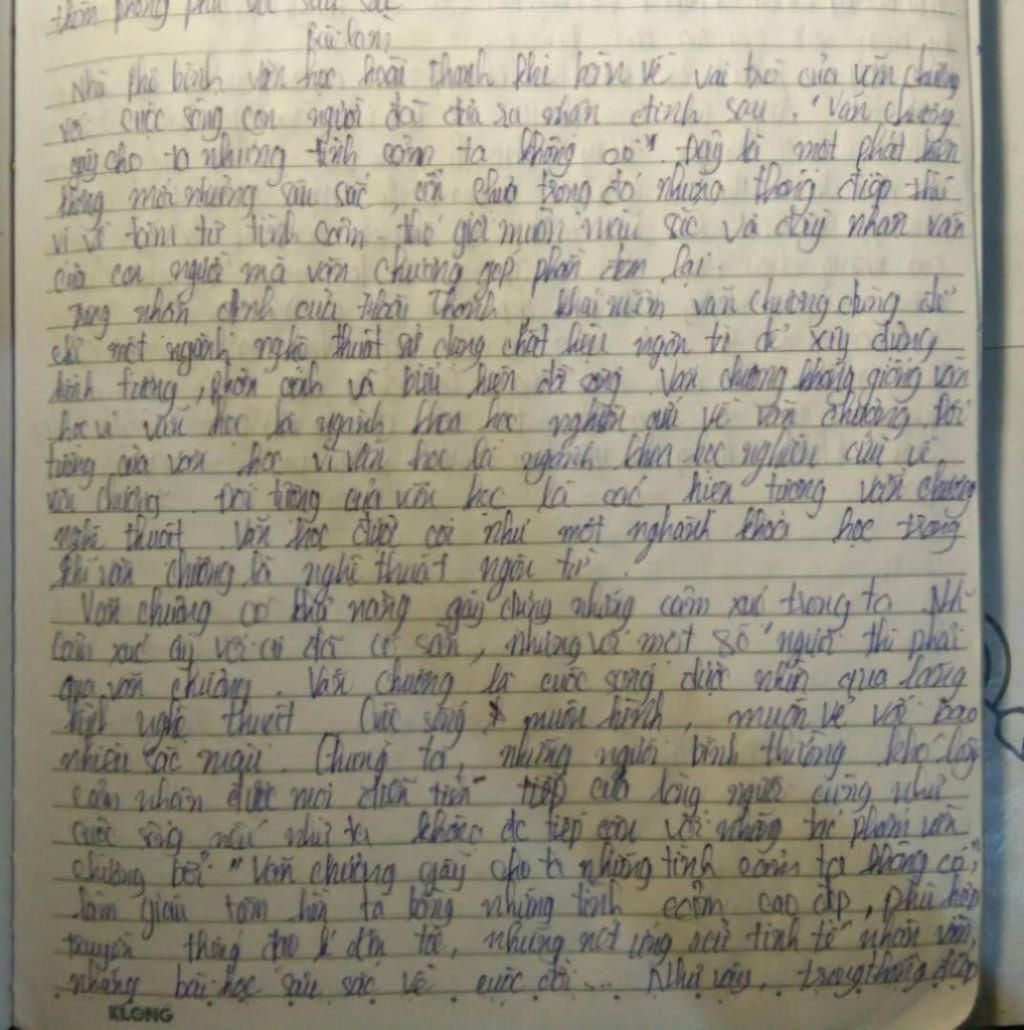 thêm phong phú và sâu sắc
Bài làm
Nhà phê bình văn học hoài thanh khi bàn về vai trò của văn chương
với cuộc sống con người đã đưa ra nhận định sau. "Văn chương
gây cho ta những tình cảm ta không có". Đây là một phát hiện
không mới nhưng sâu sắc, ẩn chứa trong đó những thông điệp thú
vị về tâm tư tình cảm thế giới muôn màu sắc và đầy nhân văn
của con người mà văn chương góp phần đem lại.
Trong nhận định của Hoài Thanh, khái niệm văn chương dùng để
chỉ một ngành nghệ thuật sử dụng chất liệu ngôn từ để xây dựng
hình tượng, phản ánh và biểu hiện đời sống. Văn chương không giống văn
học vì văn học là ngành khoa học nghiên cứu về văn chương. Đối
tượng của văn học vì văn học là ngành khoa học nghiên cứu về
văn chương. Đối tượng của văn học là các hiện tượng văn chương
nghệ thuật. Văn học được coi như một nghành khoa học trong
khi văn chương là nghệ thuật ngôn từ.
Văn chương có khả năng gây dựng những cảm xúc trong ta.
cảm xúc ấy với đã có sẵn, nhưng với một số người thì phải
qua văn chương. Văn chương là cuộc sống được nhìn qua lăng
kính nghệ thuật. Cuộc sống muôn hình, muôn vẻ với bao
nhiêu sắc màu. Chúng ta, những người bình thường khó lòng
cảm nhận được mọi diễn tiến tiếp của lòng người cũng như
cuộc sống nếu như ta không đc tiếp cận với những tác phẩm văn
chương bởi "Văn chương gây cho ta những tình cảm ta không có",
làm giàu tâm hồn ta bằng những tình cảm cao đẹp, phù hợp
truyền thống đạo lí dân tộc, những nét ứng xử tinh tế nhân văn,
những bài học sâu sắc về cuộc đời... Như vậy, trong thông điệp
KLONG